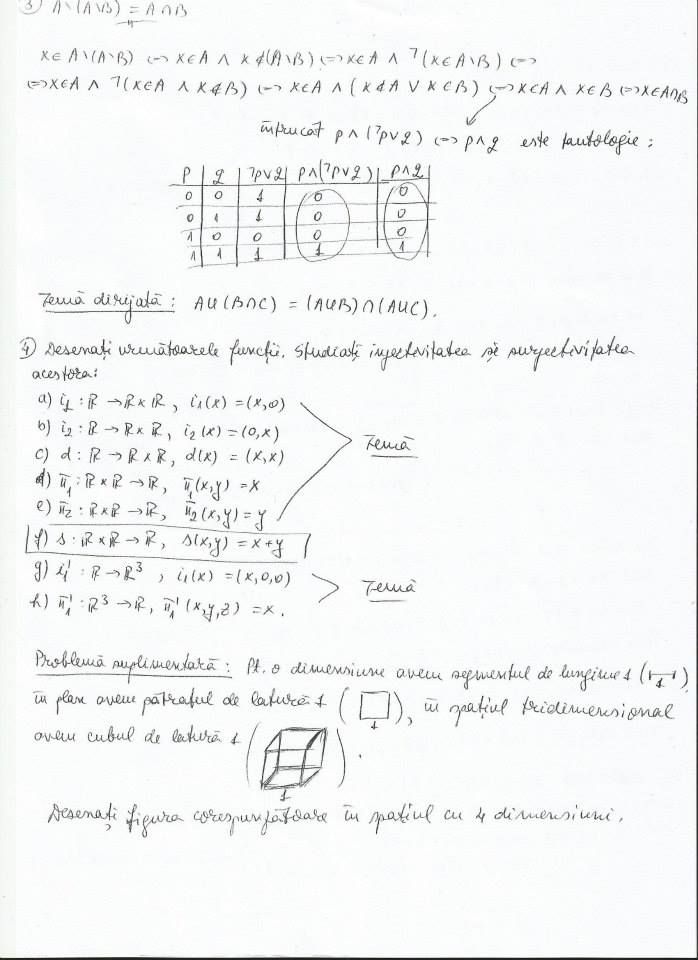 3) A \ (A \ B) = A ∩ B
x ∈ A \ (A \ B) ⇔ x ∈ A ∧ x ∉ (A \ B) ⇔ x ∈ A ∧ ¬(x ∈ A \ B) ⇔
⇔ x ∈ A ∧ ¬(x ∈ A ∧ x ∉ B) ⇔ x ∈ A ∧ (x ∉ A ∨ x ∈ B) ⇔ x ∈ A ∧ x ∈ B ⇔ x ∈ A ∩ B
întrucât p ∧ (¬p ∨ q) ⇔ p ∧ q este tautologie :
p q ¬p∨q p∧(¬p∨q) p∧q
0 0 1 0 0
0 1 1 0 0
1 0 0 0 0
1 1 1 1 1
Temă dirijată : A ∪ (B ∩ C) = (A ∪ B) ∩ (A ∪ C).
4) Desenați următoarele funcții. Studiați injectivitatea și surjectivitatea
acestora:
a) i₁ : ℝ → ℝ × ℝ , i₁(x) = (x,0)
b) i₂ : ℝ → ℝ × ℝ, i₂(x) = (0,x)
Temă
c) d : ℝ → ℝ × ℝ, d(x) = (x,x)
d) π₁ : ℝ × ℝ → ℝ, π₁(x,y) = x
e) π₂ : ℝ × ℝ → ℝ, π₂(x,y) = y
f) s : ℝ × ℝ → ℝ, s(x,y) = x+y
g) i₁' : ℝ → ℝ³ , i₁(x) = (x,0,0)
Temă
h) π₁' : ℝ³ → ℝ, π₁'(x,y,z) = x.
Problemă suplimentară : Pt. o dimensiune avem segmentul de lungime 1 ( 1 ),
în plan avem pătratul de latură 1 ( 1 ), în spațiul tridimensional
avem cubul de latură 1 ( 1 ) .
Desenați figura corespunzătoare în spațiul cu 4 dimensiuni.